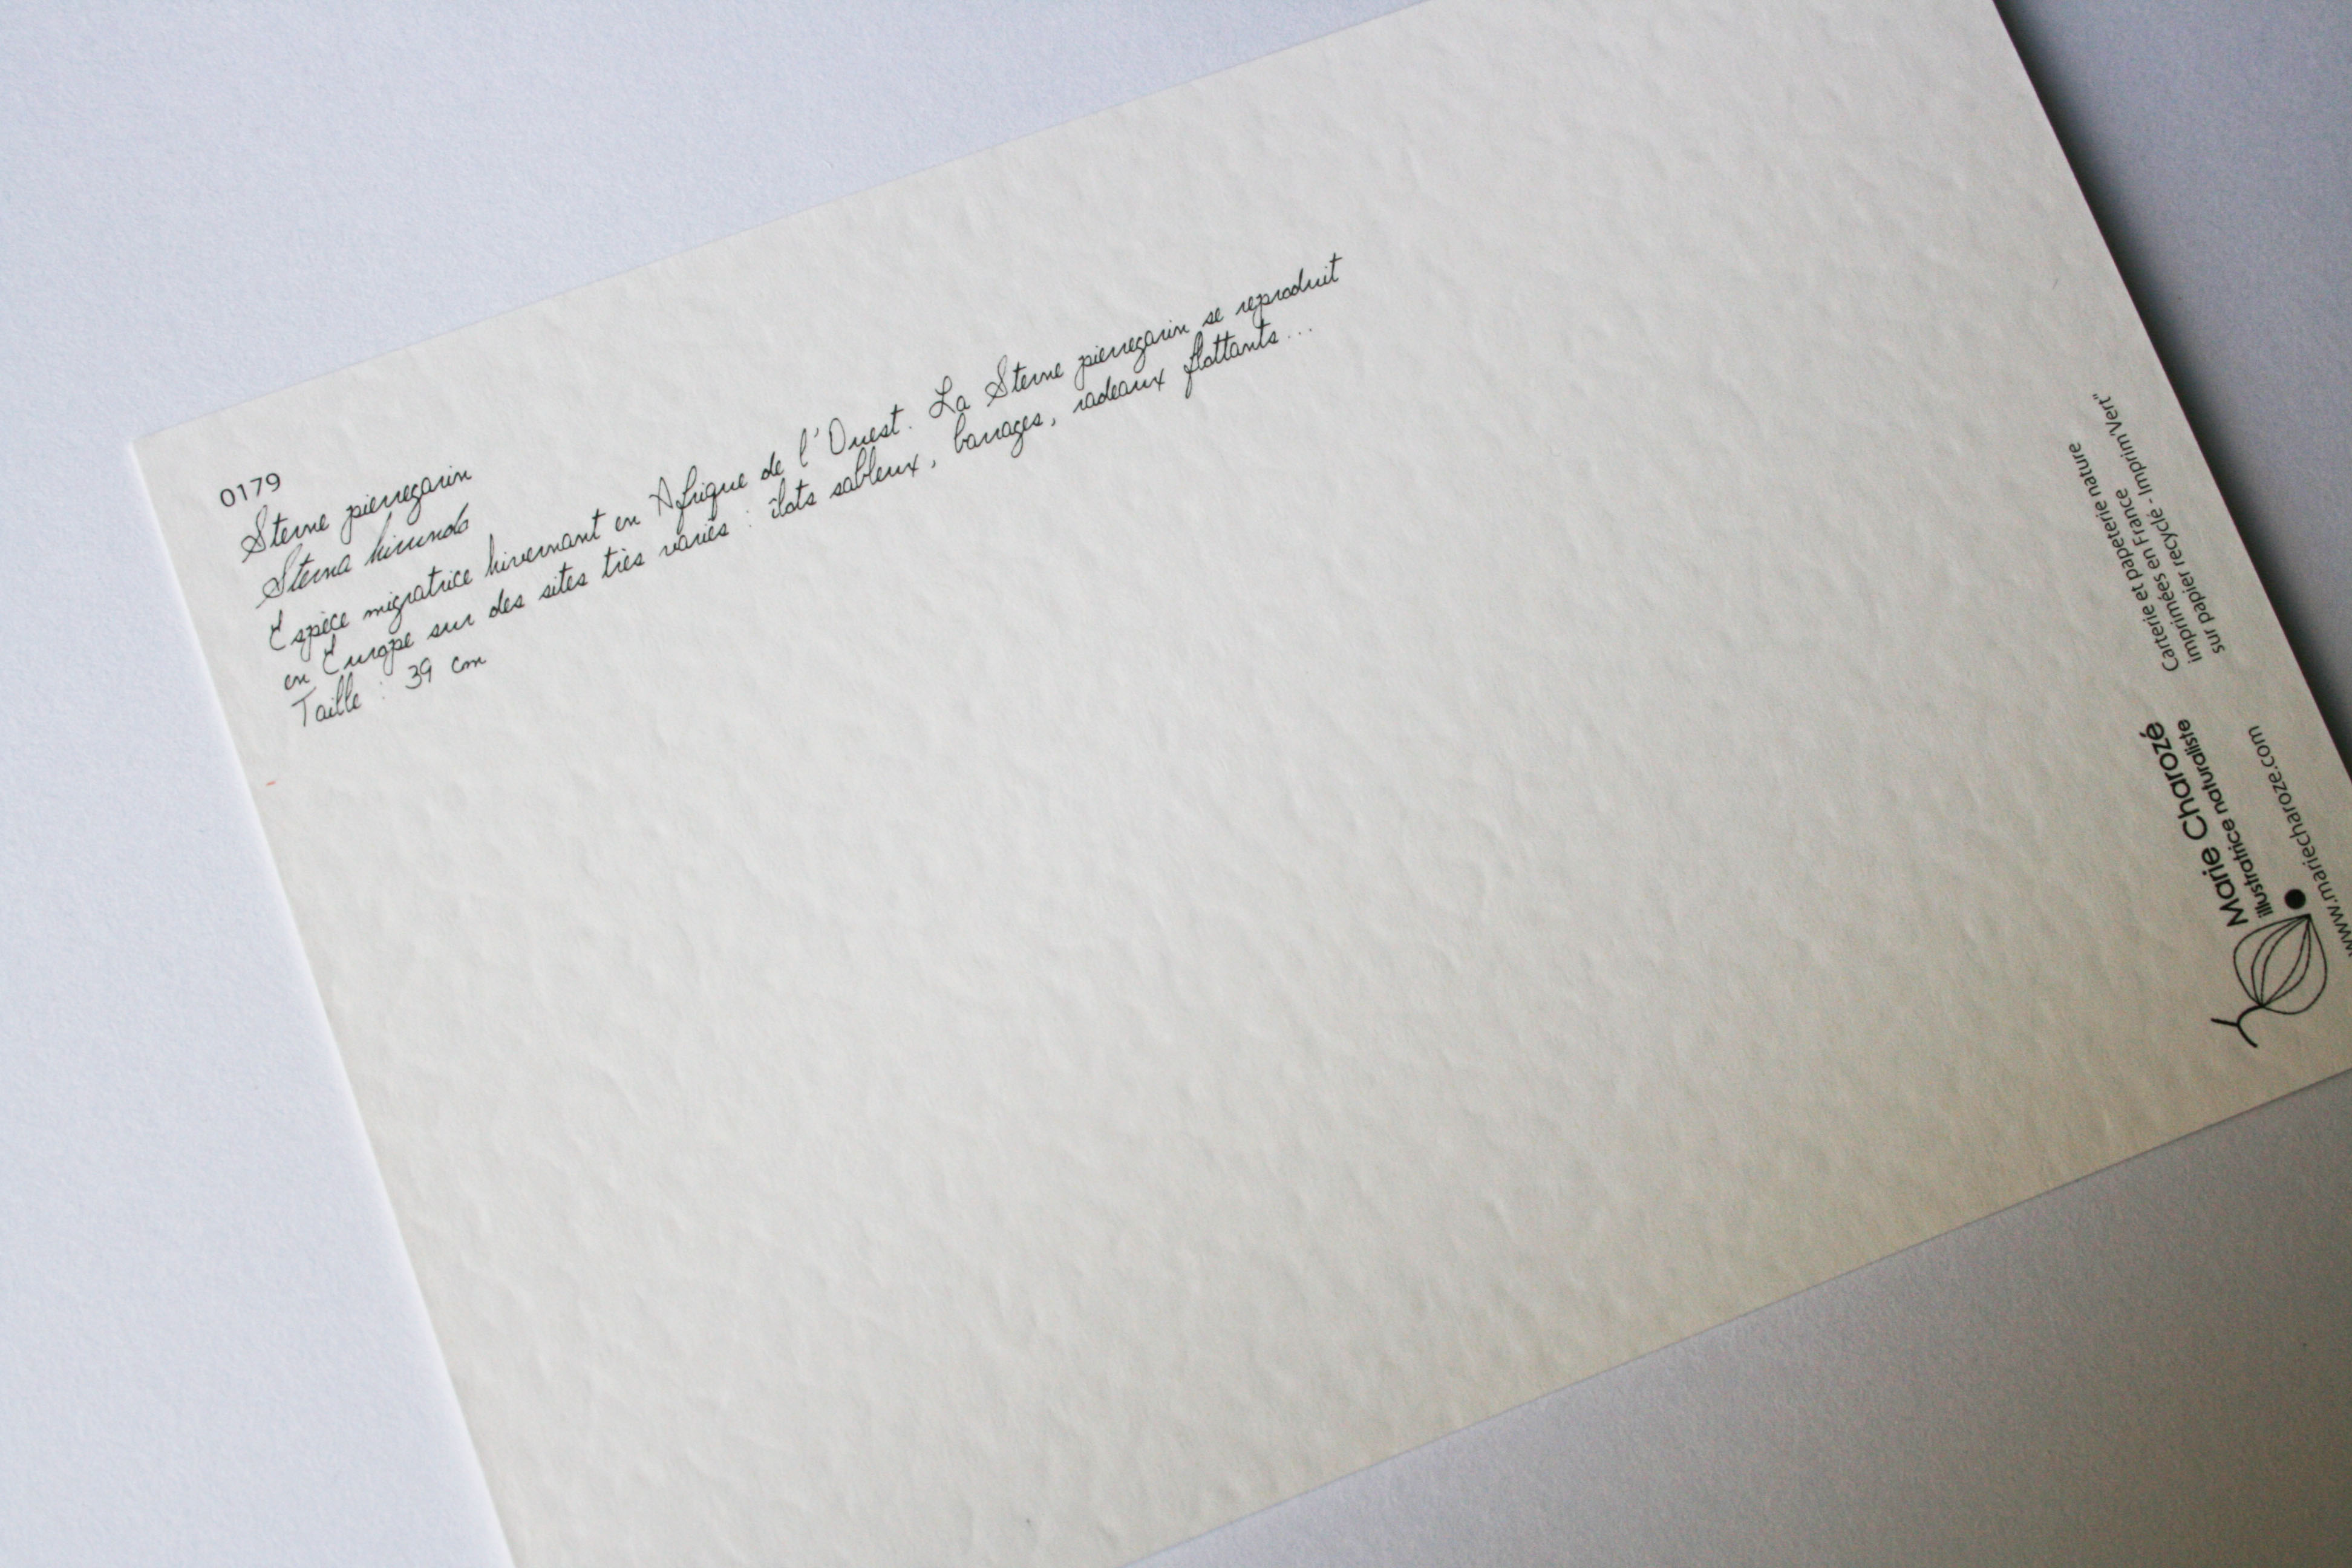 0179
Sterne pierregarin
Sterna hirundo
Espèce migratrice hivernant en Afrique de l'Ouest. La Sterne pierregarin se reproduit
en Europe sur des sites très variés : îlots sableux, barrages, radeaux flottants...
Taille : 39 cm
Carterie et papeterie nature
imprimées en France
sur papier recyclé - Imprim'Vert"
Marie Charozé
illustratrice naturaliste
www.mariecharoze.com